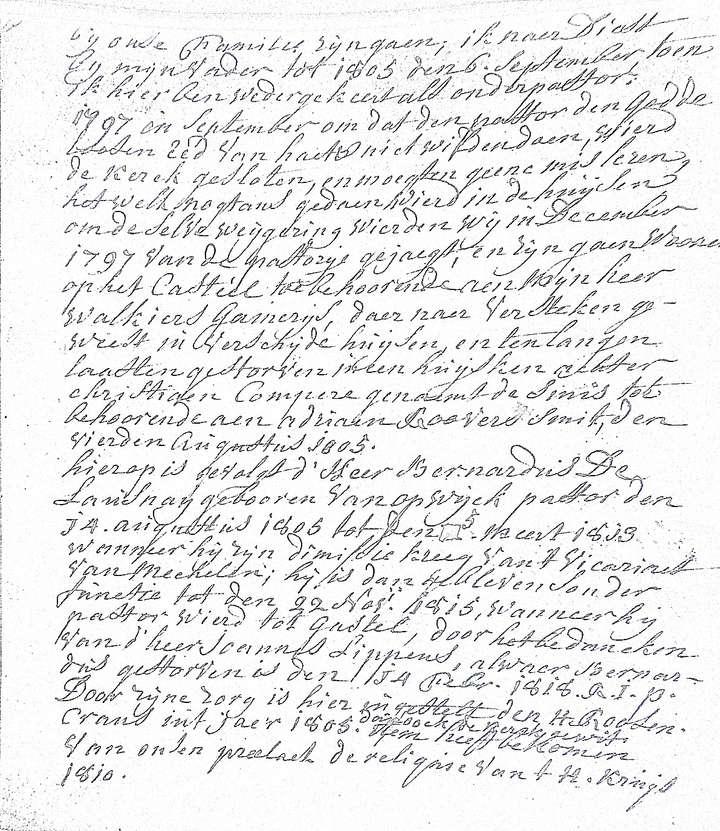 by onse Familie zijn gaen; ik naer Diest
by mijn Vader tot 1805 den 6. September toen
ik hier ben wedergekeert als onderpastor.
1797 in September om dat den pastor den godde
loosen Eed Van haet niet wilden doen, wierd
de Kerck gesloten, en moegten geene mis lezen,
het welk nogtans gedaen wierd in de huijsen
om deselve weijgering wierden wij in December
1797 Van de pastorye gejaegt, en zyn gaen Woonen
op het Casteel toebehoorende aen Mijn heer
Walkiers Gamerys, daer naer Versteken ge-
weest in Verschyde huijsen, en ten langen
laasten gestorven in een huijsken achter
christiaen Compere genaemt de Smis toe
behoorende aen adriaen Roovers Smit, den
vierden Augustus 1805.
hier op is gevolgt d'Heer Bernardus De
Launay gebooren Van opwijck pastor den
14. augustus 1805 tot den 5. Meert 1813
wanneer hij zijn dimissie kreeg Van t Vicariaet
Van Mechelen; hij is dan gebleven sonder
functie tot den 22 Nov. 1815, wanneer hij
pastor wierd tot Gastel, door het bedancken
Van d'heer Joannes Lippens, alwaer Bernar-
dus gestorven is den 14 Febr. 1818. R. I. P.
Door zijne zorg is hier ingestelt den H. Roosen-
crans int jaer 1805. dan oock de kerk gewit.
Hem heeft bekomen
Van onsen preelaet de religuie Van t H. Kruijs
1810.